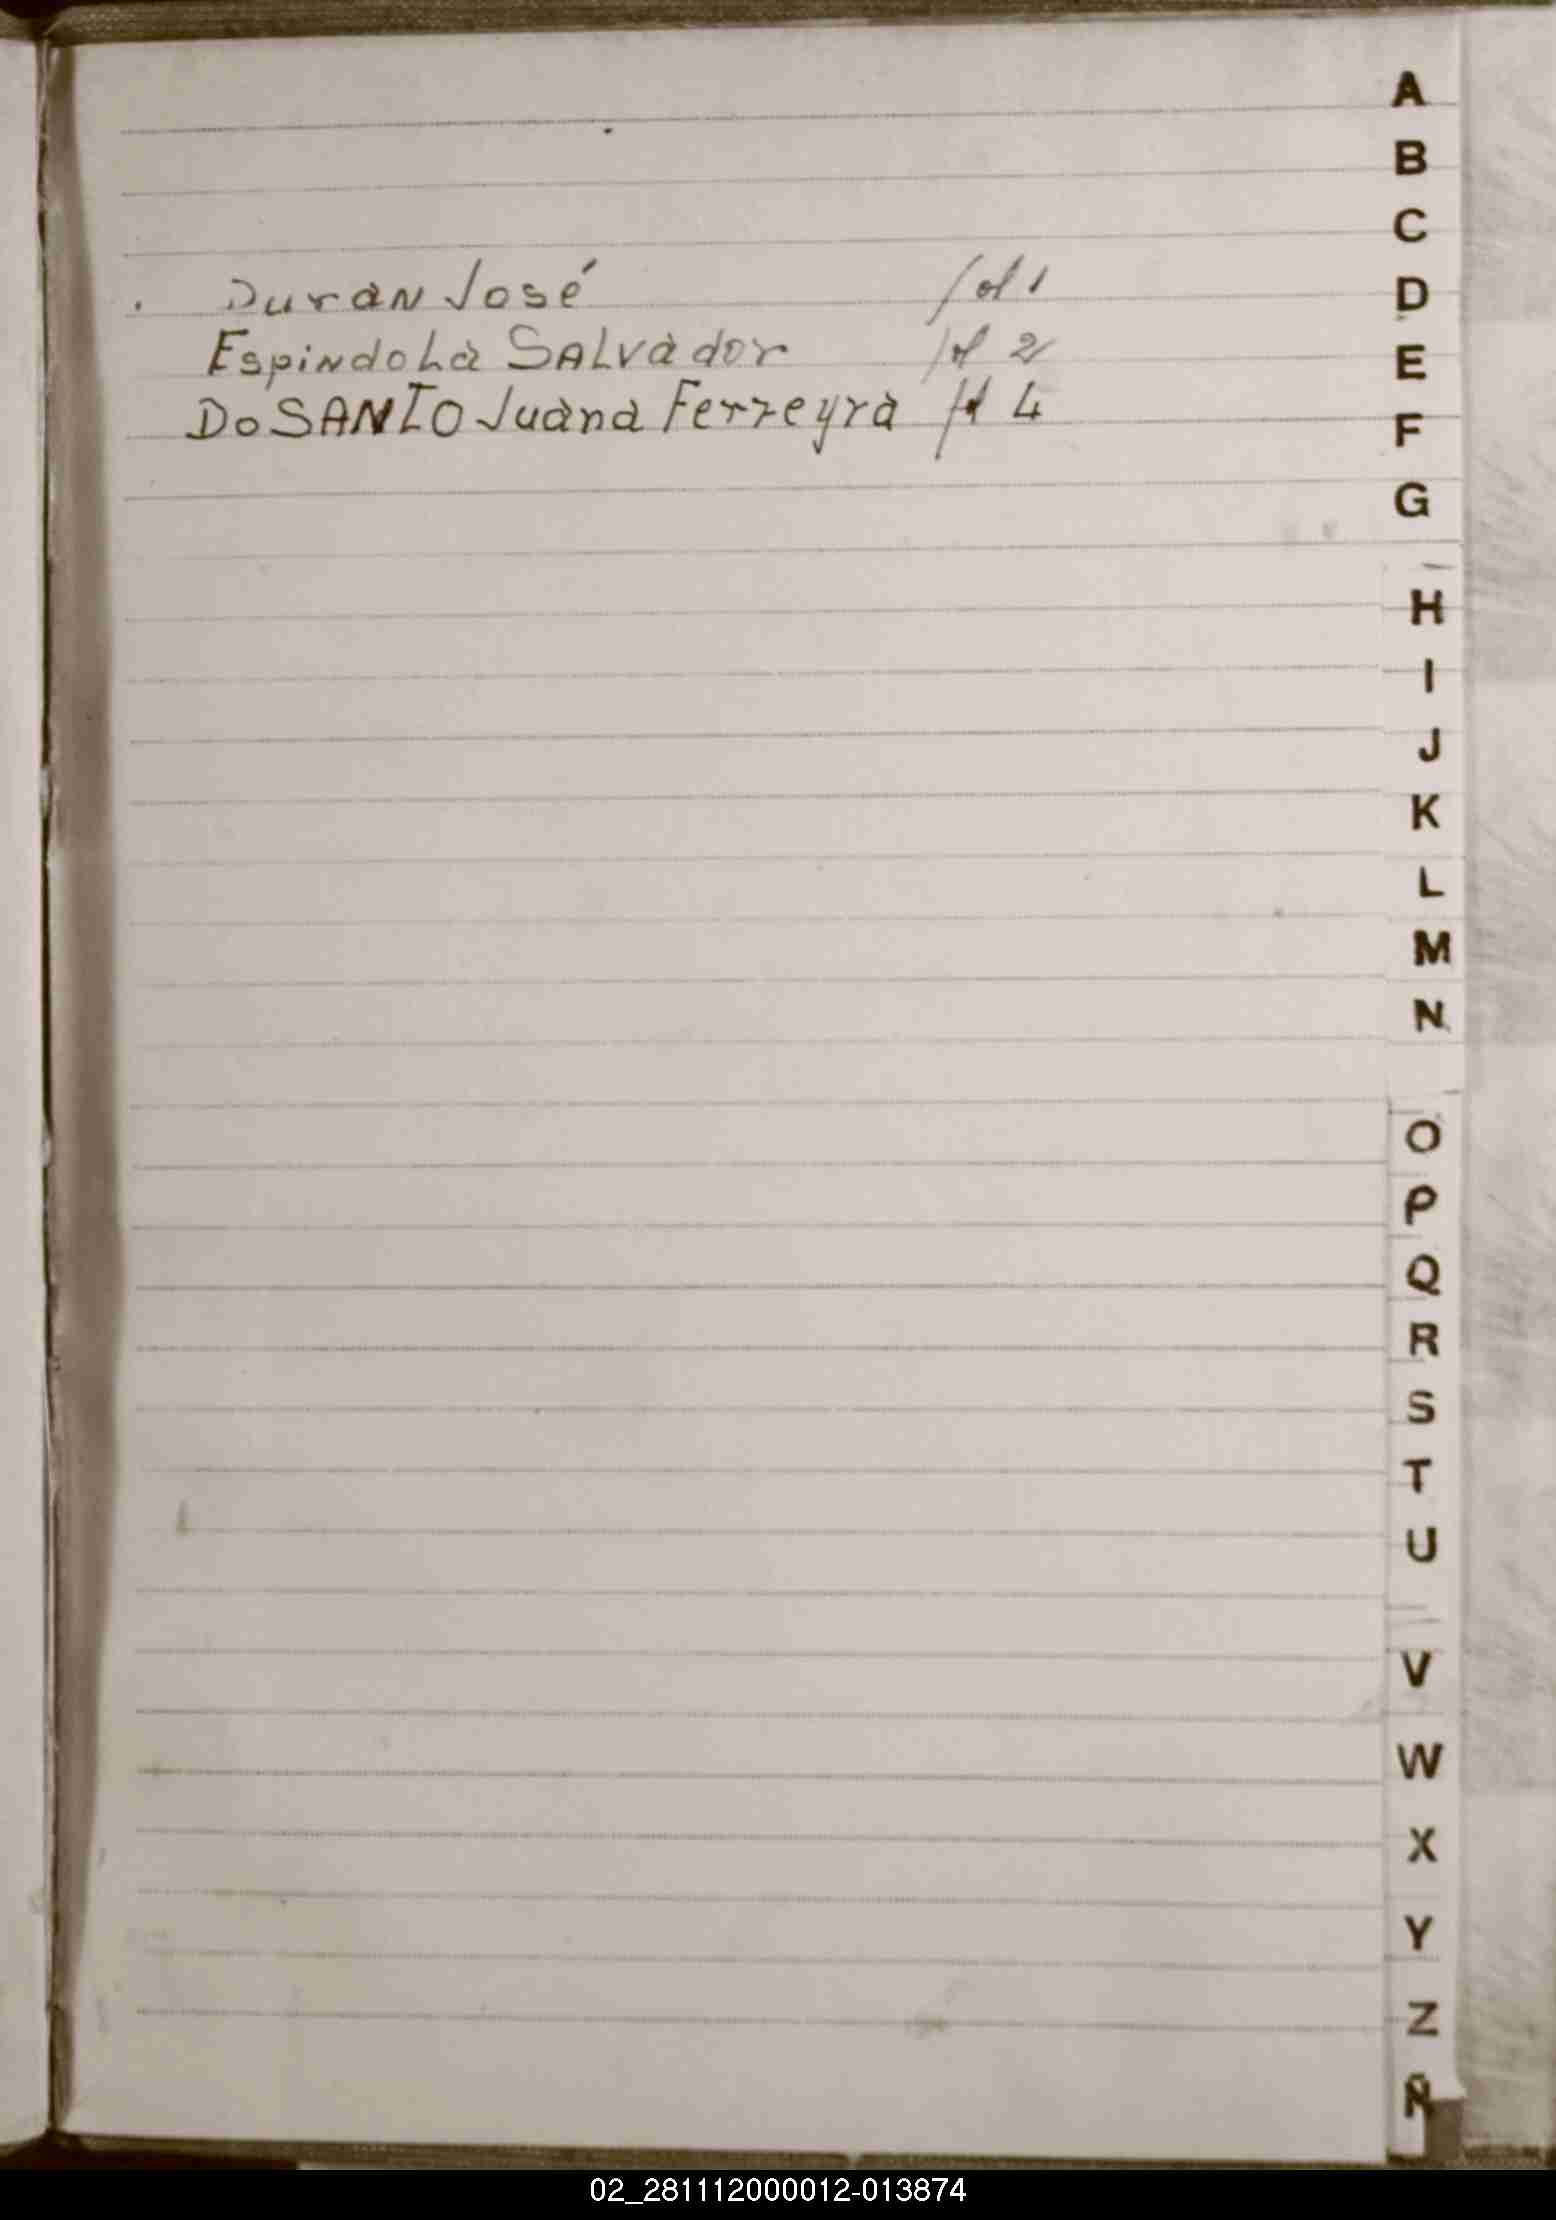 A
B
C
Duran José fol 1
D
Espindola Salvador fol 2
E
DO SANTO Juana Ferreyra fol 4
F
G
H
I
J
K
L
M
N
O
P
Q
R
S
T
U
V
W
X
Y
Z
Ñ
02_281112000012-013874